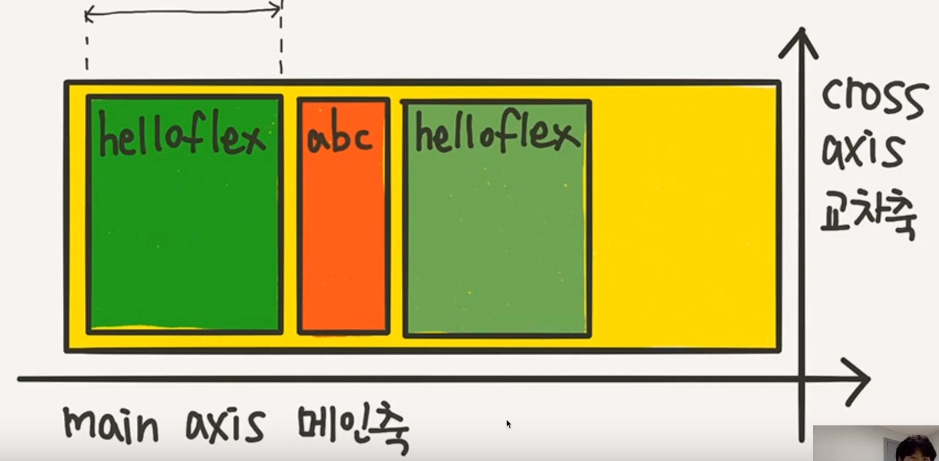 helloflex
abc
helloflex
cross
axis
교차축
main axis 메인축